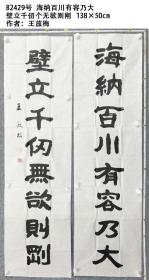 B2429号 海纳百川有容乃大
壁立千仞个无欲则刚 138×50cm
作者：王
海納百川有容乃大
壁立千仞無欲則剛